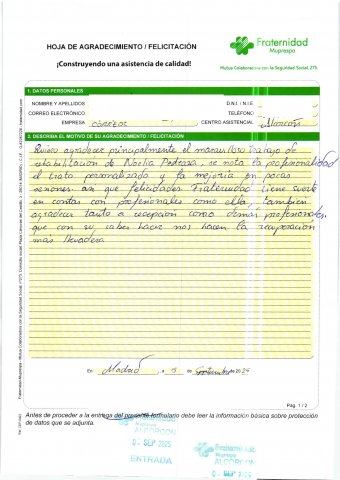 HOJA DE AGRADECIMIENTO / FELICITACIÓN
¡Construyendo una asistencia de calidad!
Fraternidad
Muprespa
Mutua Colaboradora con la Seguridad Social, 275
1. DATOS PERSONALES
NOMBRE Y APELLIDOS
D.N.I. / N.I.E.
CORREO ELECTRÓNICO
TELÉFONO
EMPRESA
CENTRO ASISTENCIAL
2. DESCRIBA EL MOTIVO DE SU AGRADECIMIENTO / FELICITACIÓN
Quiero agradecer principalmente el maravilloso trabajo de
rehabilitación de Noelia Pedraza, se nota la profesionalidad
el trato personalizado y la mejoria en pocas
sesiones. asi que felicidades Fraternidad tiene suerte
en contar con profesionales como ella, tambien
agradecer tanto a recepcion como demas profesionales
que con su saber hacer nos hacen la recuperacion
más llevadera
En Madrid, a 5 de Septiembre de 2024
Pág. 1 / 2
Antes de proceder a la entrega del presente formulario debe leer la información básica sobre protección
de datos que se adjunta.
Fraternidad
Muprespa
ALCORCÓN
0. SEP 2025
ENTRADA
Muprespa
ALCORCÓN
SEP 2025